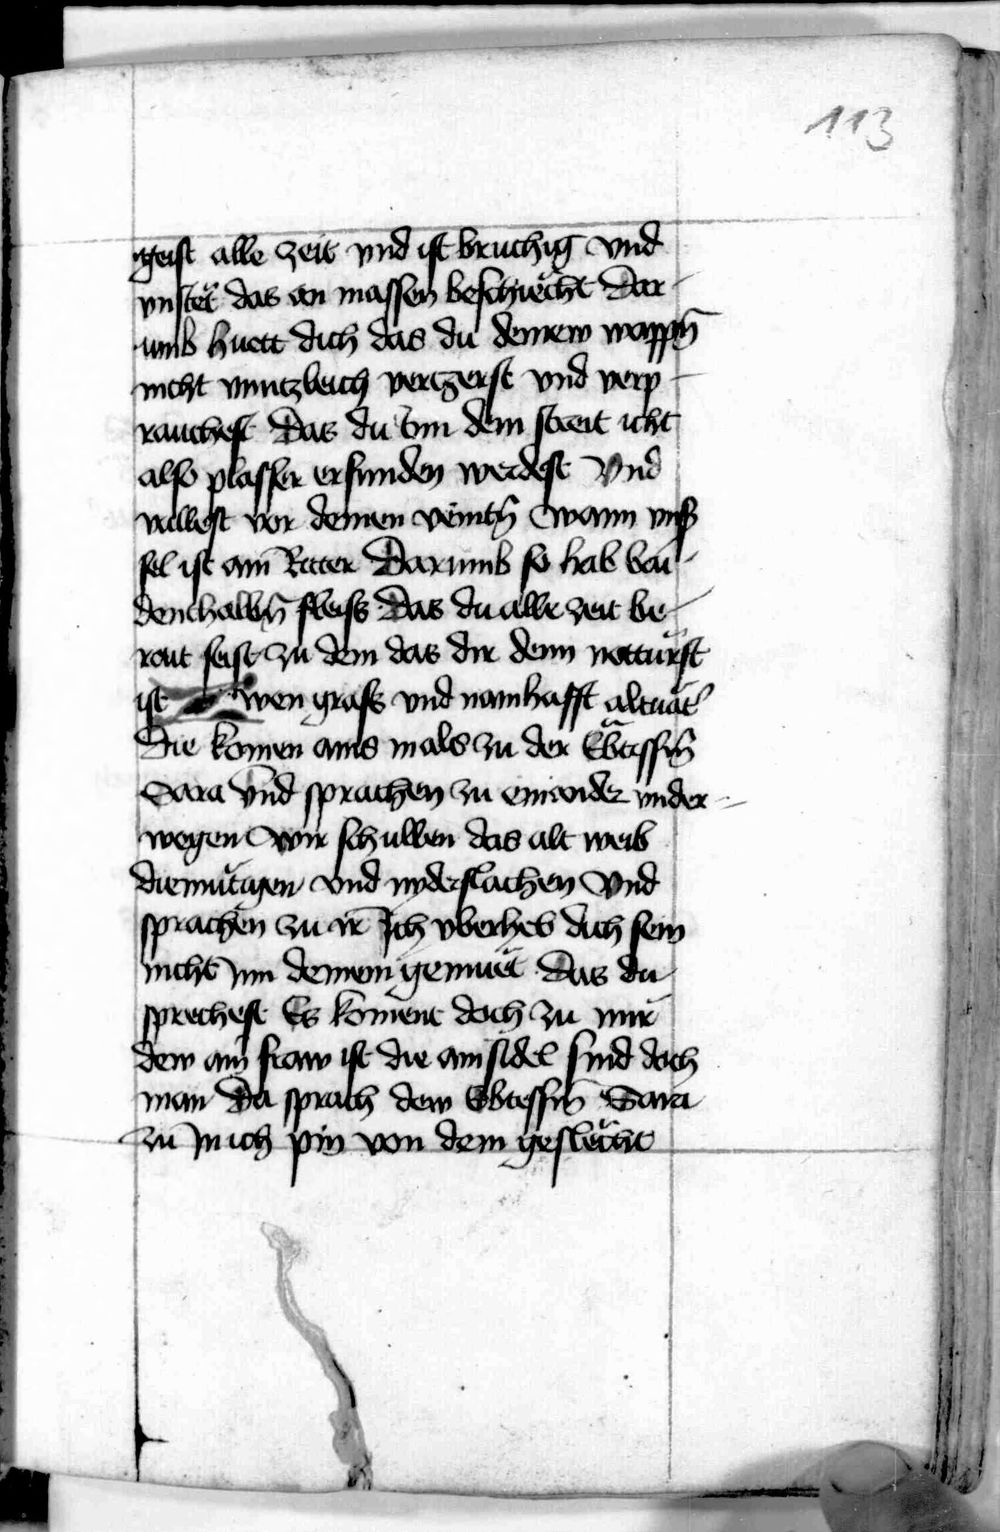 113
geist alle zeit vnd ist bruchig vnd
vnstet das an massen beschwecht Dar-
umb huett dich das du deinew wappn̄
nicht vnnutzleich vertzerst vnd verp-
rauchest Das du Inn dem streit icht
also plasser erfunden werdest Vnd
vallest vor deinen veintn̄ Wann vnß
sel ist am̄ Ritter Darumb so hab bai-
denthalbn̄ fleiss Das du alle zeit be-
rait seist zu dem das dir denn notturft
ist wen gross vnd namhafft altuat̄
Die komen ains mals zu der Ebtessin̄
Sara Vnd sprachen zu einander vnder-
wegen Wir schullen das alt weib
diemutigen vnd nyderslachen Vnd
sprachen zu ir̄ Ich vberheb dich sein
nicht Inn deinem gemuet Das du
sprechest Es koment doch zu mir
dew ain fraw ist die ainsidel sind doch
man Da sprach dew Ebtessin̄ Sara
zu In ich pin von dem geslecht